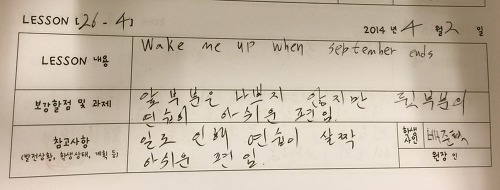 LESSON [26 - 4]
2014 년 4 월 2 일
LESSON 내용
Wake me up when september ends
보강할점 및 과제
앞 부분은 나쁘지 않지만 뒷부분의
연습이 아쉬운 편임.
참고사항
(발전상황, 학생상태, 계획 등)
일로 인해 연습이 살짝
아쉬운 편임.
학생
사인
배준택
원장 인